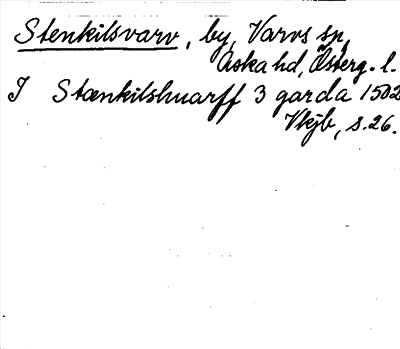 Stenkilsvarv, by, Varvs sn,
Aska hd, Österg. l.
I Stænkilshuarff 3 garda 1502
Vkjb, s. 26.